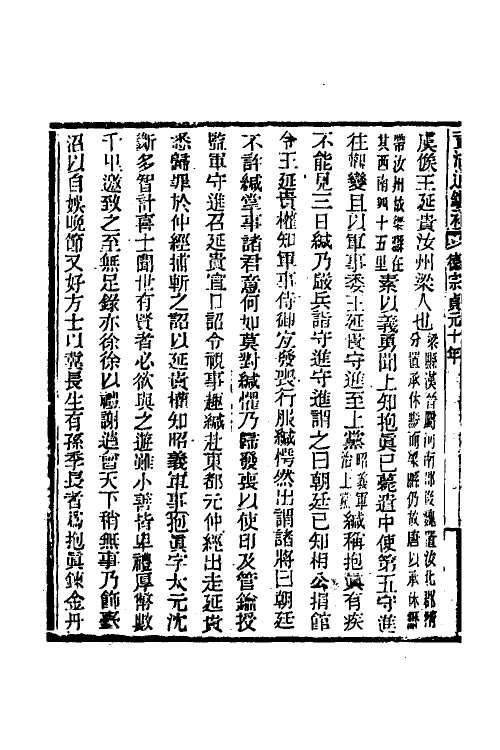 德宗貞元十年
虞候王延貴汝州梁人也梁縣漢晉屬河南郡後魏置汝北郡隋
分置承休縣而梁縣仍故唐以承休縣
帶汝州故梁縣在
其西南四十五里
素以義勇聞上知抱眞已薨遣中使第五守進
往觀變且以軍事委王延貴守進至上黨昭義軍治上黨緘稱抱眞有疾
不能見三日緘乃嚴兵詣守進守進謂之曰朝廷已知相公捐館
令王延貴權知軍事侍御宜發喪行服緘愕然出謂諸將曰朝廷
不許緘掌事諸君意何如莫對緘懼乃歸發喪以使印及管鑰授
監軍守進召延貴宣口詔令視事趣緘赴東都元仲經出走延貴
悉歸罪於仲經捕斬之詔以延貴權知昭義軍事抱眞字太元沈
斷多智計喜士聞世有賢者必欲與之遊雖小善皆卑禮厚幣數
千里邀致之至無足錄亦徐徐以禮謝遣會天下稍無事乃飾臺
沼以自娛晚節又好方士以冀長生有孫季長者爲抱眞鍊金丹